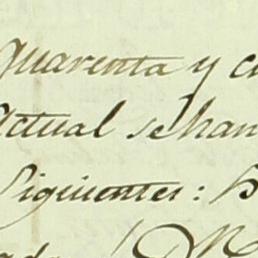 quarenta y c
Actual se han
Siguientes: D